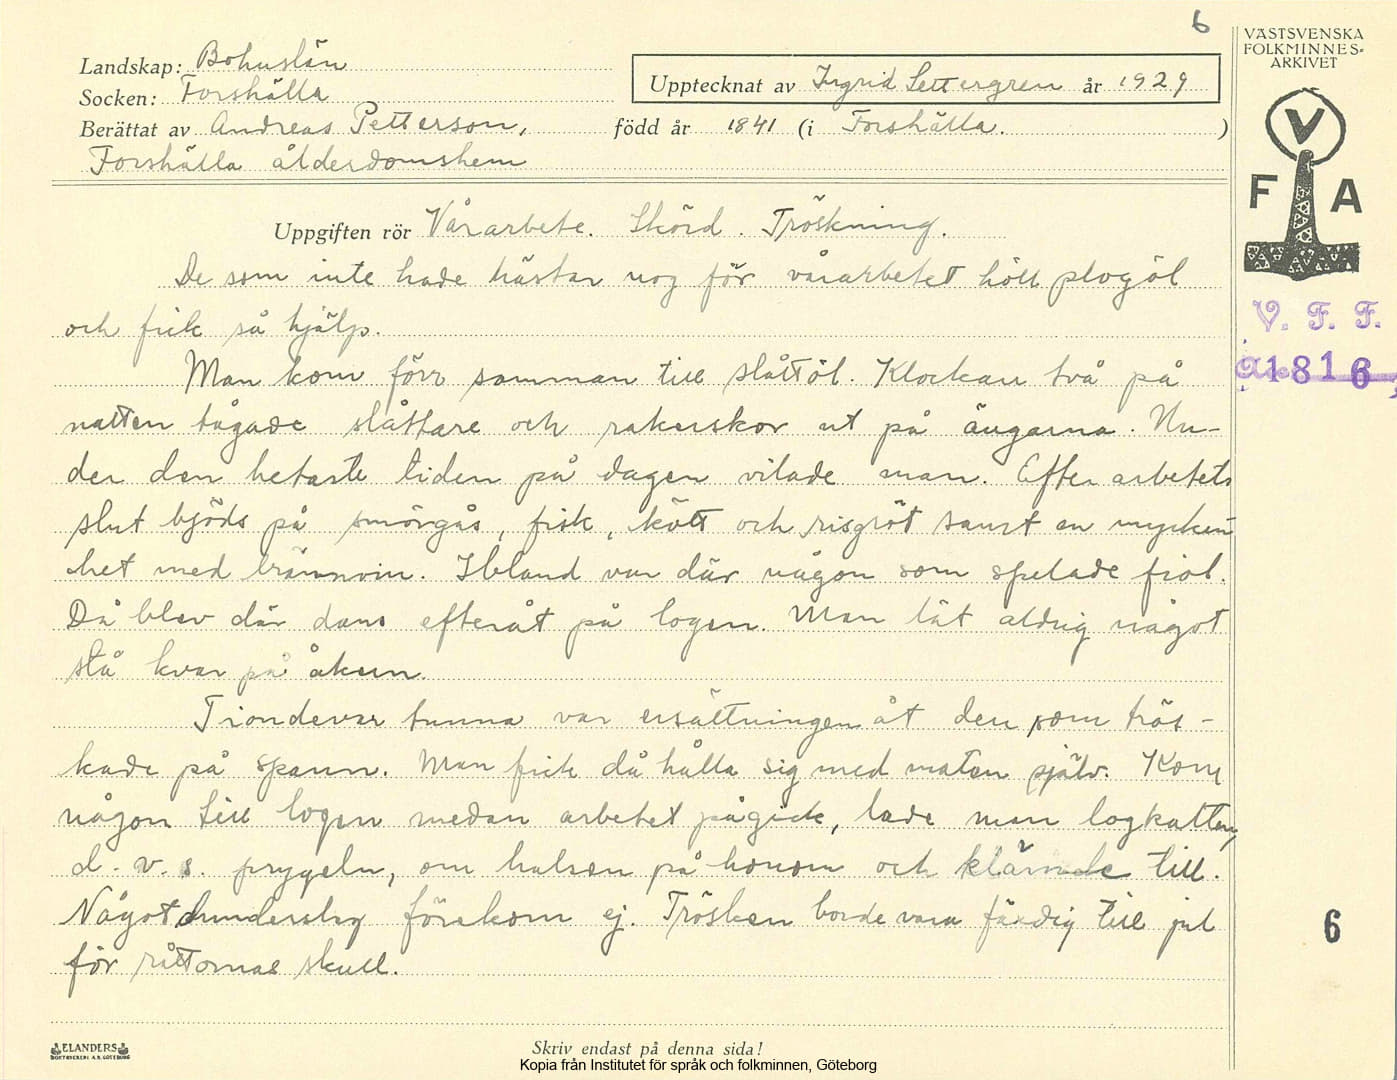 6
VÄSTSVENSKA
FOLKMINNES-
ARKIVET
Landskap: Bohuslän
Socken: Forshälla
Upptecknat av Ingrid Settergren år 1929
Berättat av Andreas Petterson, född år 1841 (i Forshälla. )
Forshälla ålderdomshem
V
F A
Uppgiften rör Vårarbete. Skörd. Tröskning.
De som inte hade hästar nog för vårarbetet höll plogöl
och fick så hjälp.
V. F. F.
1816
Man kom förr samman till slåttöl. Klockan två på
natten tågade slåttare och rakerskor ut på ängarna. Un-
der den hetaste tiden på dagen vilade man. Efter arbetets
slut bjöds på smörgås, fisk, kött och risgröt samt en mycken-
het med brännvin. Ibland var där någon som spelade fiol.
Då blev där dans efteråt på logen. Man lät aldrig något
stå kvar på åkern.
Tiondevar tunna var ersättningen åt den som trös-
kade på spann. Man fick då hålla sig med maten själv. Kom
någon till logen medan arbetet pågick, lade man logkatten,
d. v. s. prygeln, om halsen på honom och klämde till.
Något dunderslag förekom ej. Trösken borde vara färdig till jul
för råttornas skull.
6
ELANDERS
BOKTRYCKERI A.B. GÖTEBORG
Skriv endast på denna sida!
Kopia från Institutet för språk och folkminnen, Göteborg